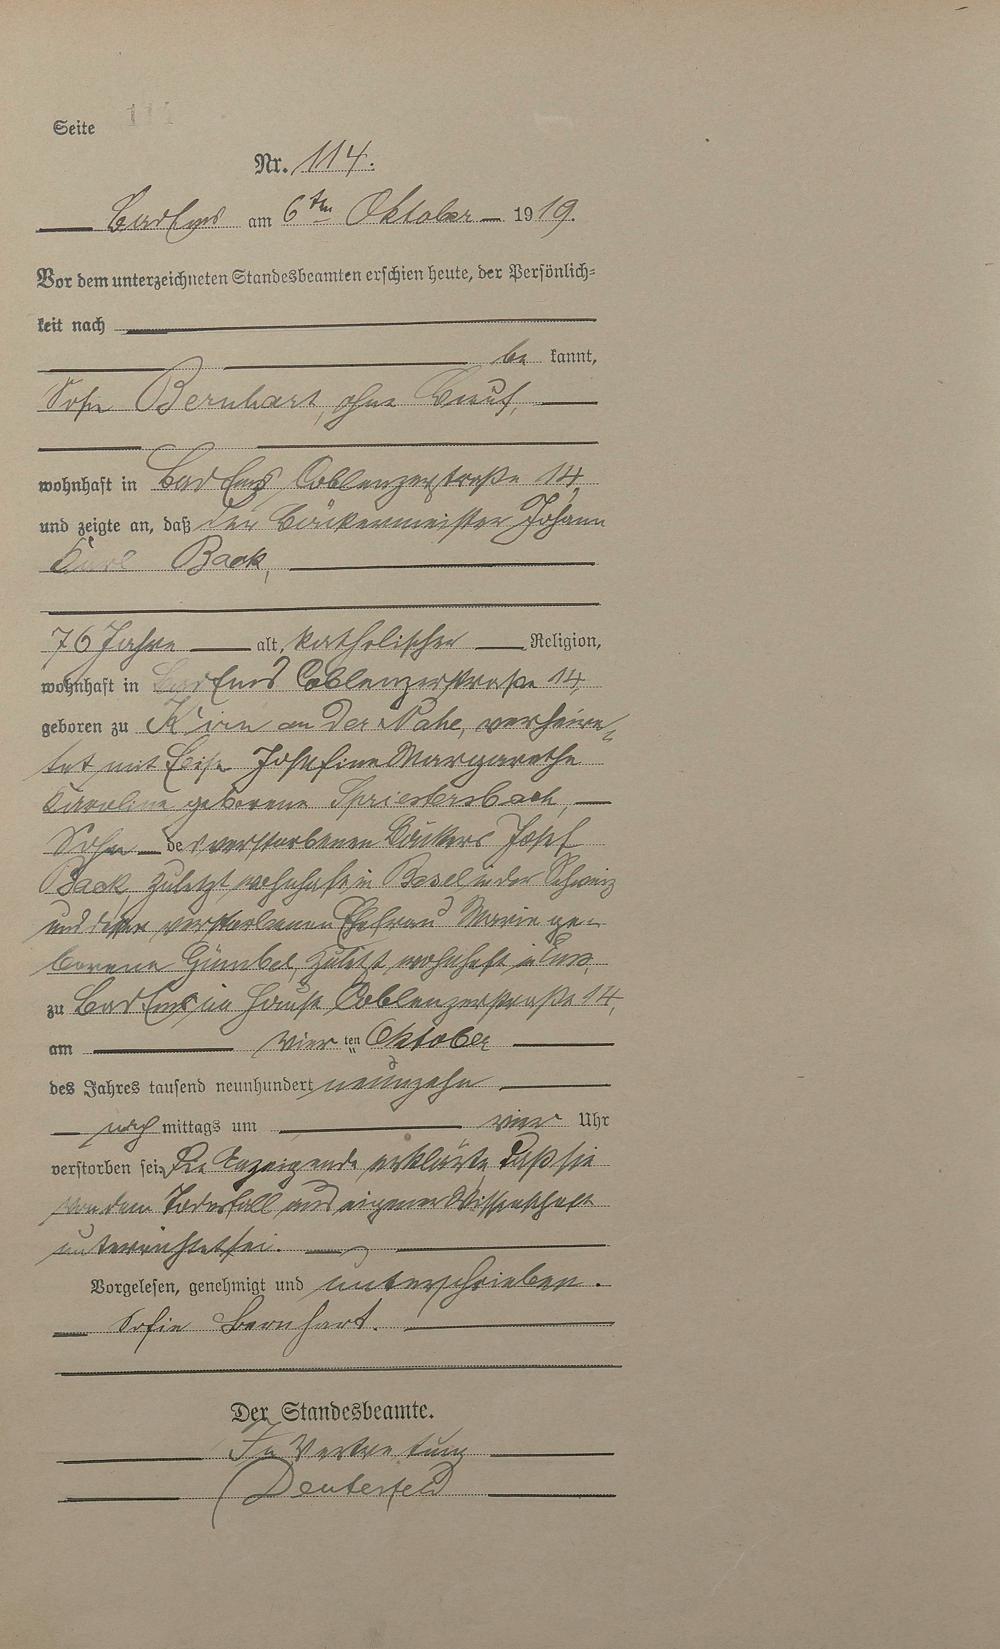 Seite 111
Nr. 114.
Bad Ems am 6ten Oktober 1919.
Vor dem unterzeichneten Standesbeamten erschien heute, der Persönlich=
keit nach
be kannt,
Bernhart, ohne Beruf,
wohnhaft in Bad Ems, Coblenzerstraße 14,
und zeigte an, daß der Bäckermeister Johann
Karl Back,
76 Jahre alt, katholischer Religion,
wohnhaft in Bad Ems Coblenzerstraße 14,
geboren zu Kirn an der Nahe, verheira-
tet mit Josefine Margarethe
Karoline geborene Spriestersbach,
Sohn des verstorbenen Bäckers Josef
Back, zuletzt wohnhaft in Basel in der Schweiz
und verstorbenen Ehefrau Marie ge-
borene Gümbel, zuletzt wohnhaft in Ems,
zu Bad Ems, im Hause Coblenzerstraße 14,
am vier ten Oktober
des Jahres tausend neunhundert neunzehn
nach mittags um vier Uhr
verstorben sei. Die Anzeigende erklärte, daß sie
von dem Todesfall aus eigener Wissenschaft
unterrichtet sei.
Vorgelesen, genehmigt und unterschrieben.
Sofie Bernhart.
Der Standesbeamte.
In Vertretung